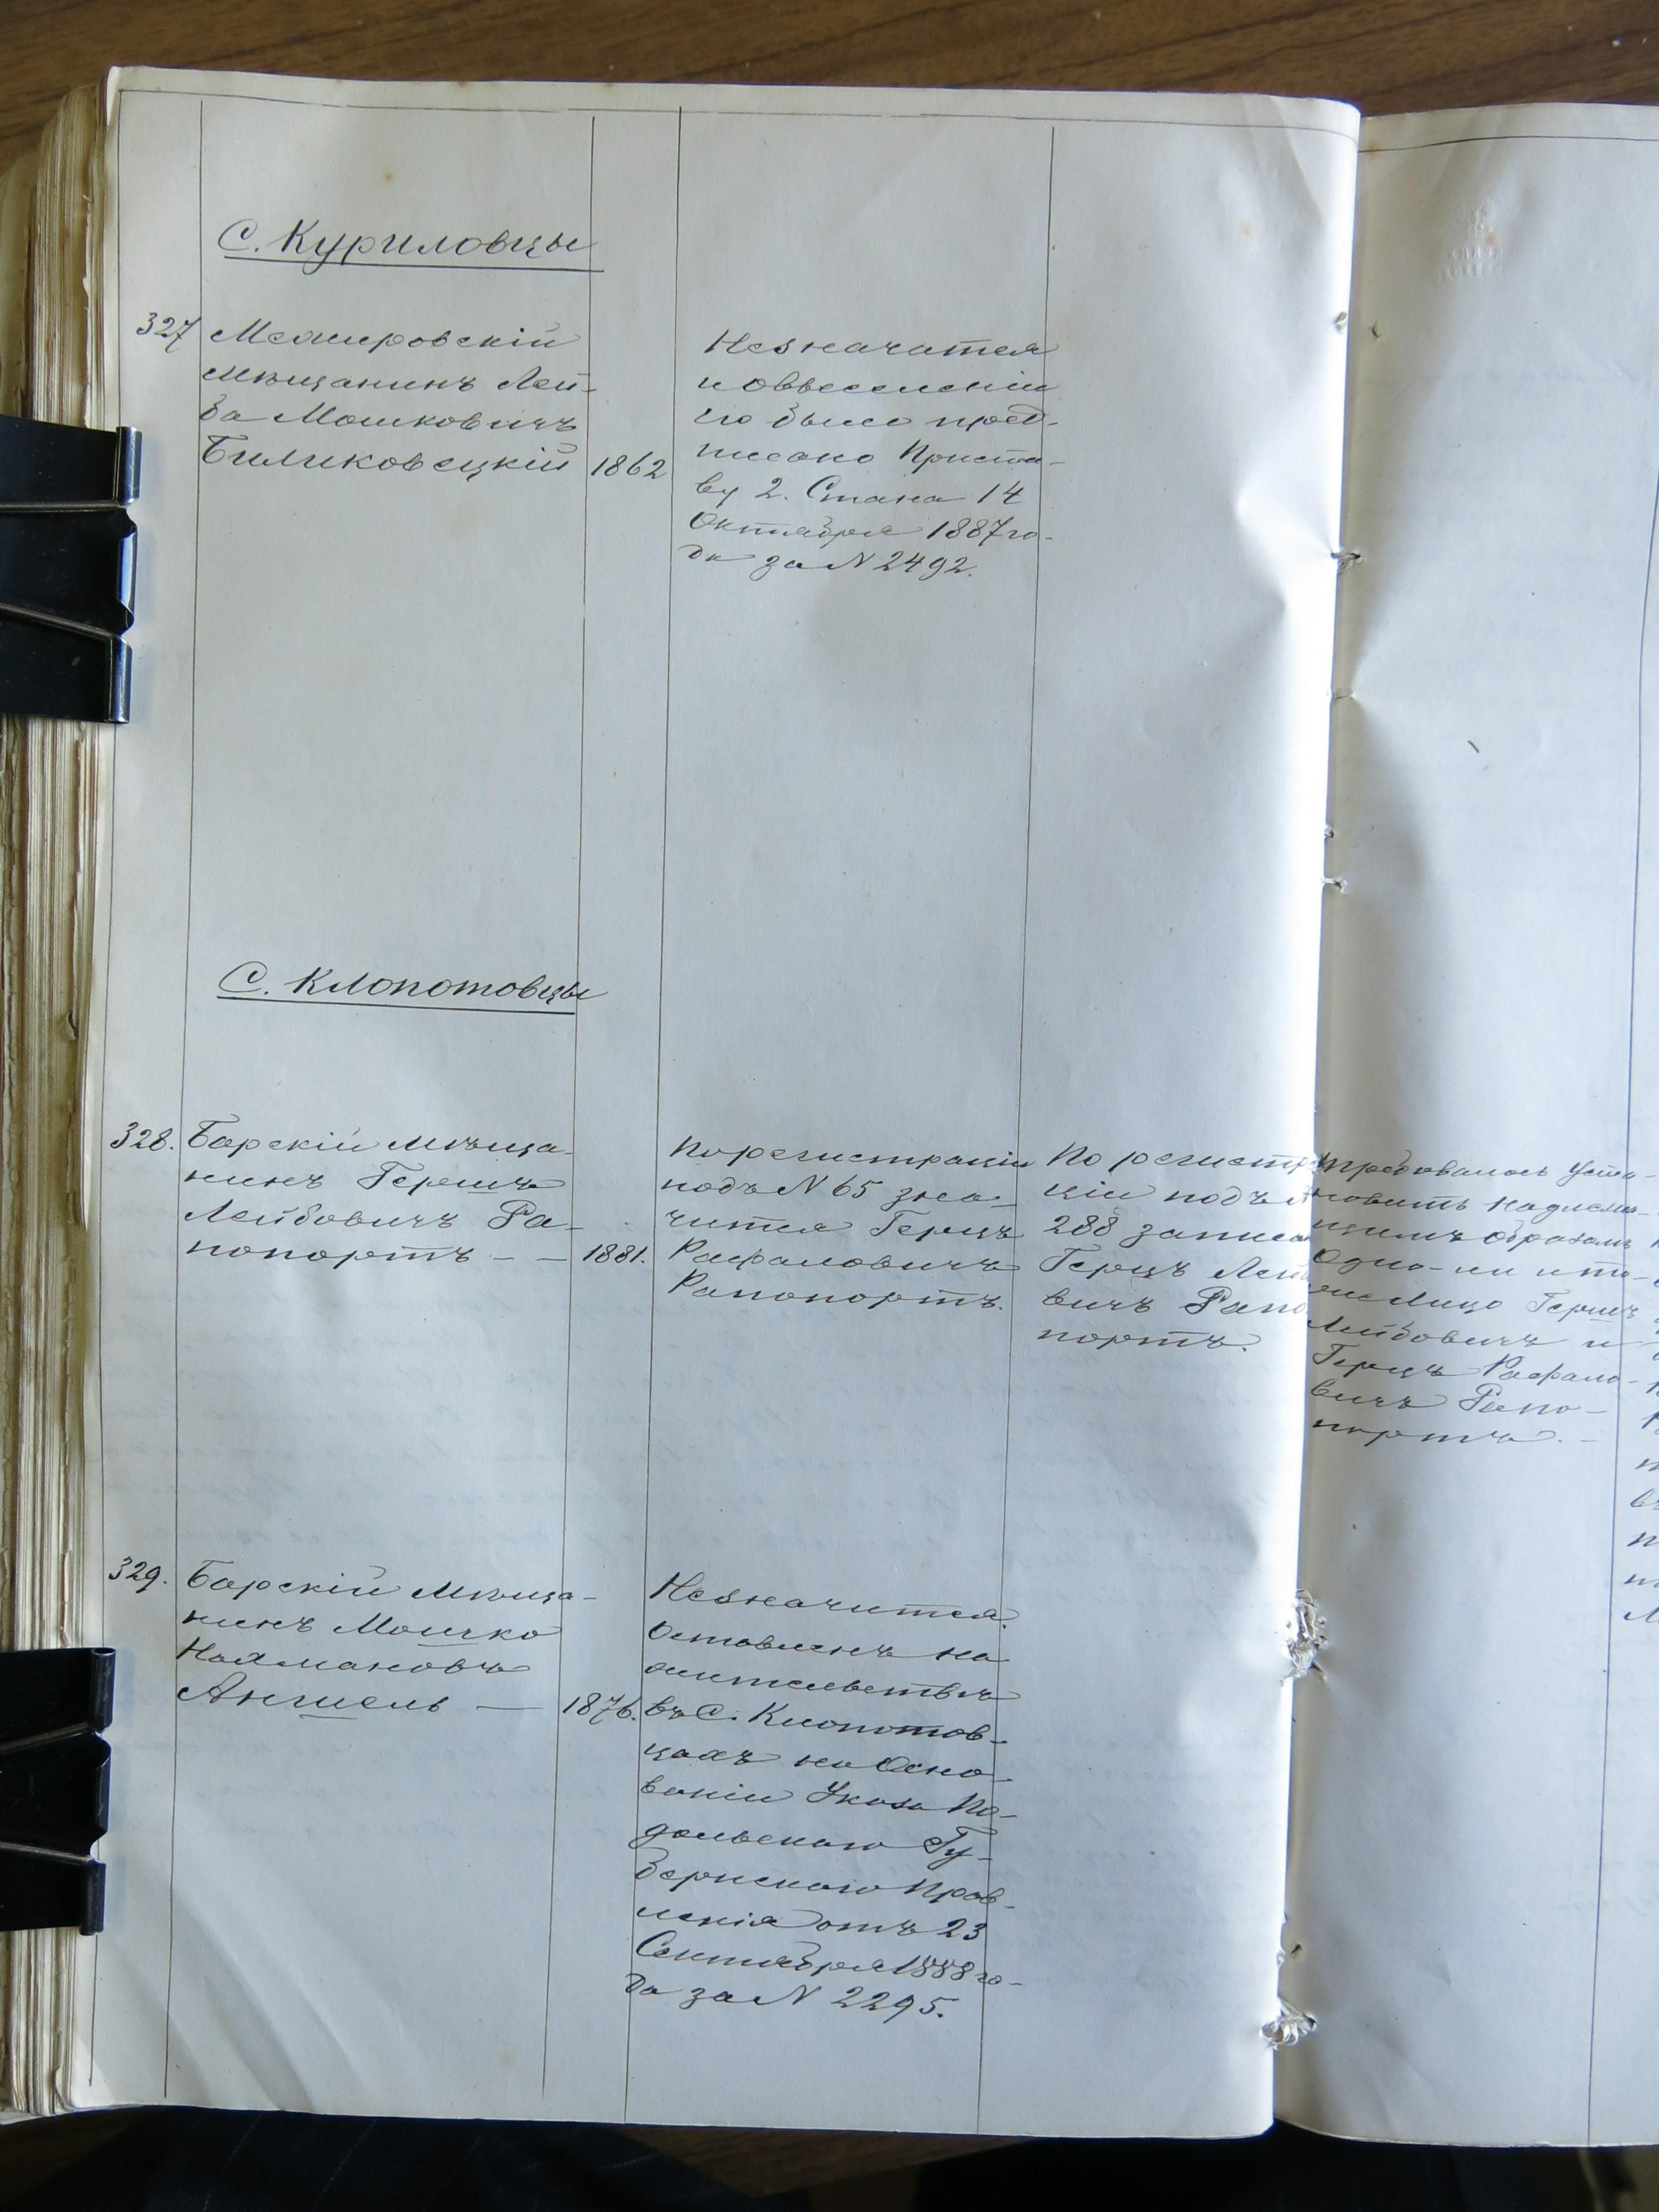 С. Куриловцы
327 Межировскій
мѣщанинъ Лей-
ба Мошковичъ
Биликовецкій 1862
Незначится
и овыселеніи
его было пред-
писано Приста-
ву 2. Стана 14
Октября 1887 го-
да за № 2492.
С. Клопотовцы
328. Барскій мѣща-
нинъ Гершъ
Лейбовичъ Ра-
попортъ — — 1881.
По регистраціи
подъ № 65 зна-
чится Герцъ
Рафаловичъ
Рапопортъ.
По регистр
ціи подъ №
288 записа
Герцъ Лей
вичъ Рапо
портъ.
требовалось уста-
новить надлежа-
щимъ образомъ
одно-ли и то-
же лицо Гершъ
Лейбовичъ и
Герцъ Рафало-
вичъ Рапо-
портъ. —
329. Барскій мѣща-
нинъ Мошко
Нахмановъ
Аншель — 1876.
Незначится.
Оставленъ на
жительствѣ
въ С. Клопотов-
цахъ на Осно-
ваніи Указа По-
дольскаго Гу-
бернскаго Прав-
ленія отъ 23
Сентября 1888 го-
да за № 2295.